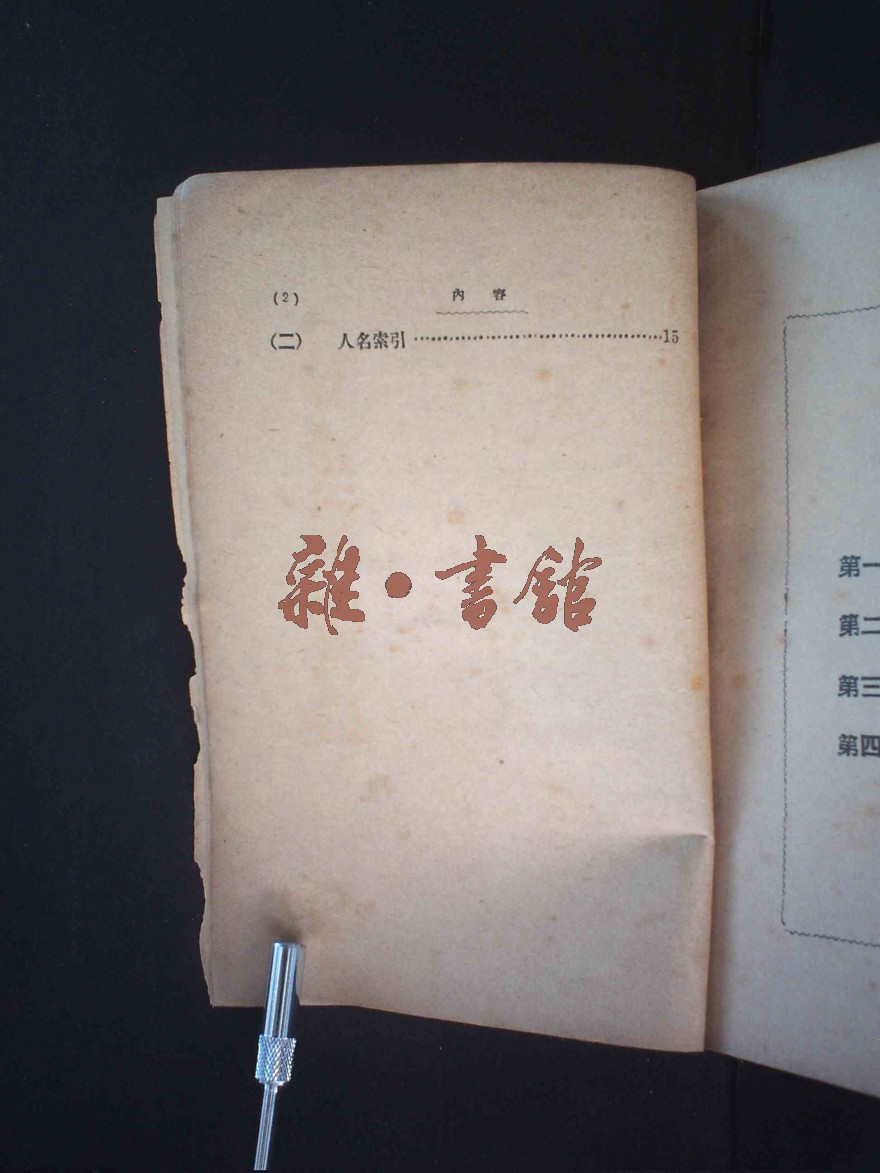 (2) 內容
(二) 人名索引……………………………………15
雜·書館
第一
第二
第三
第四